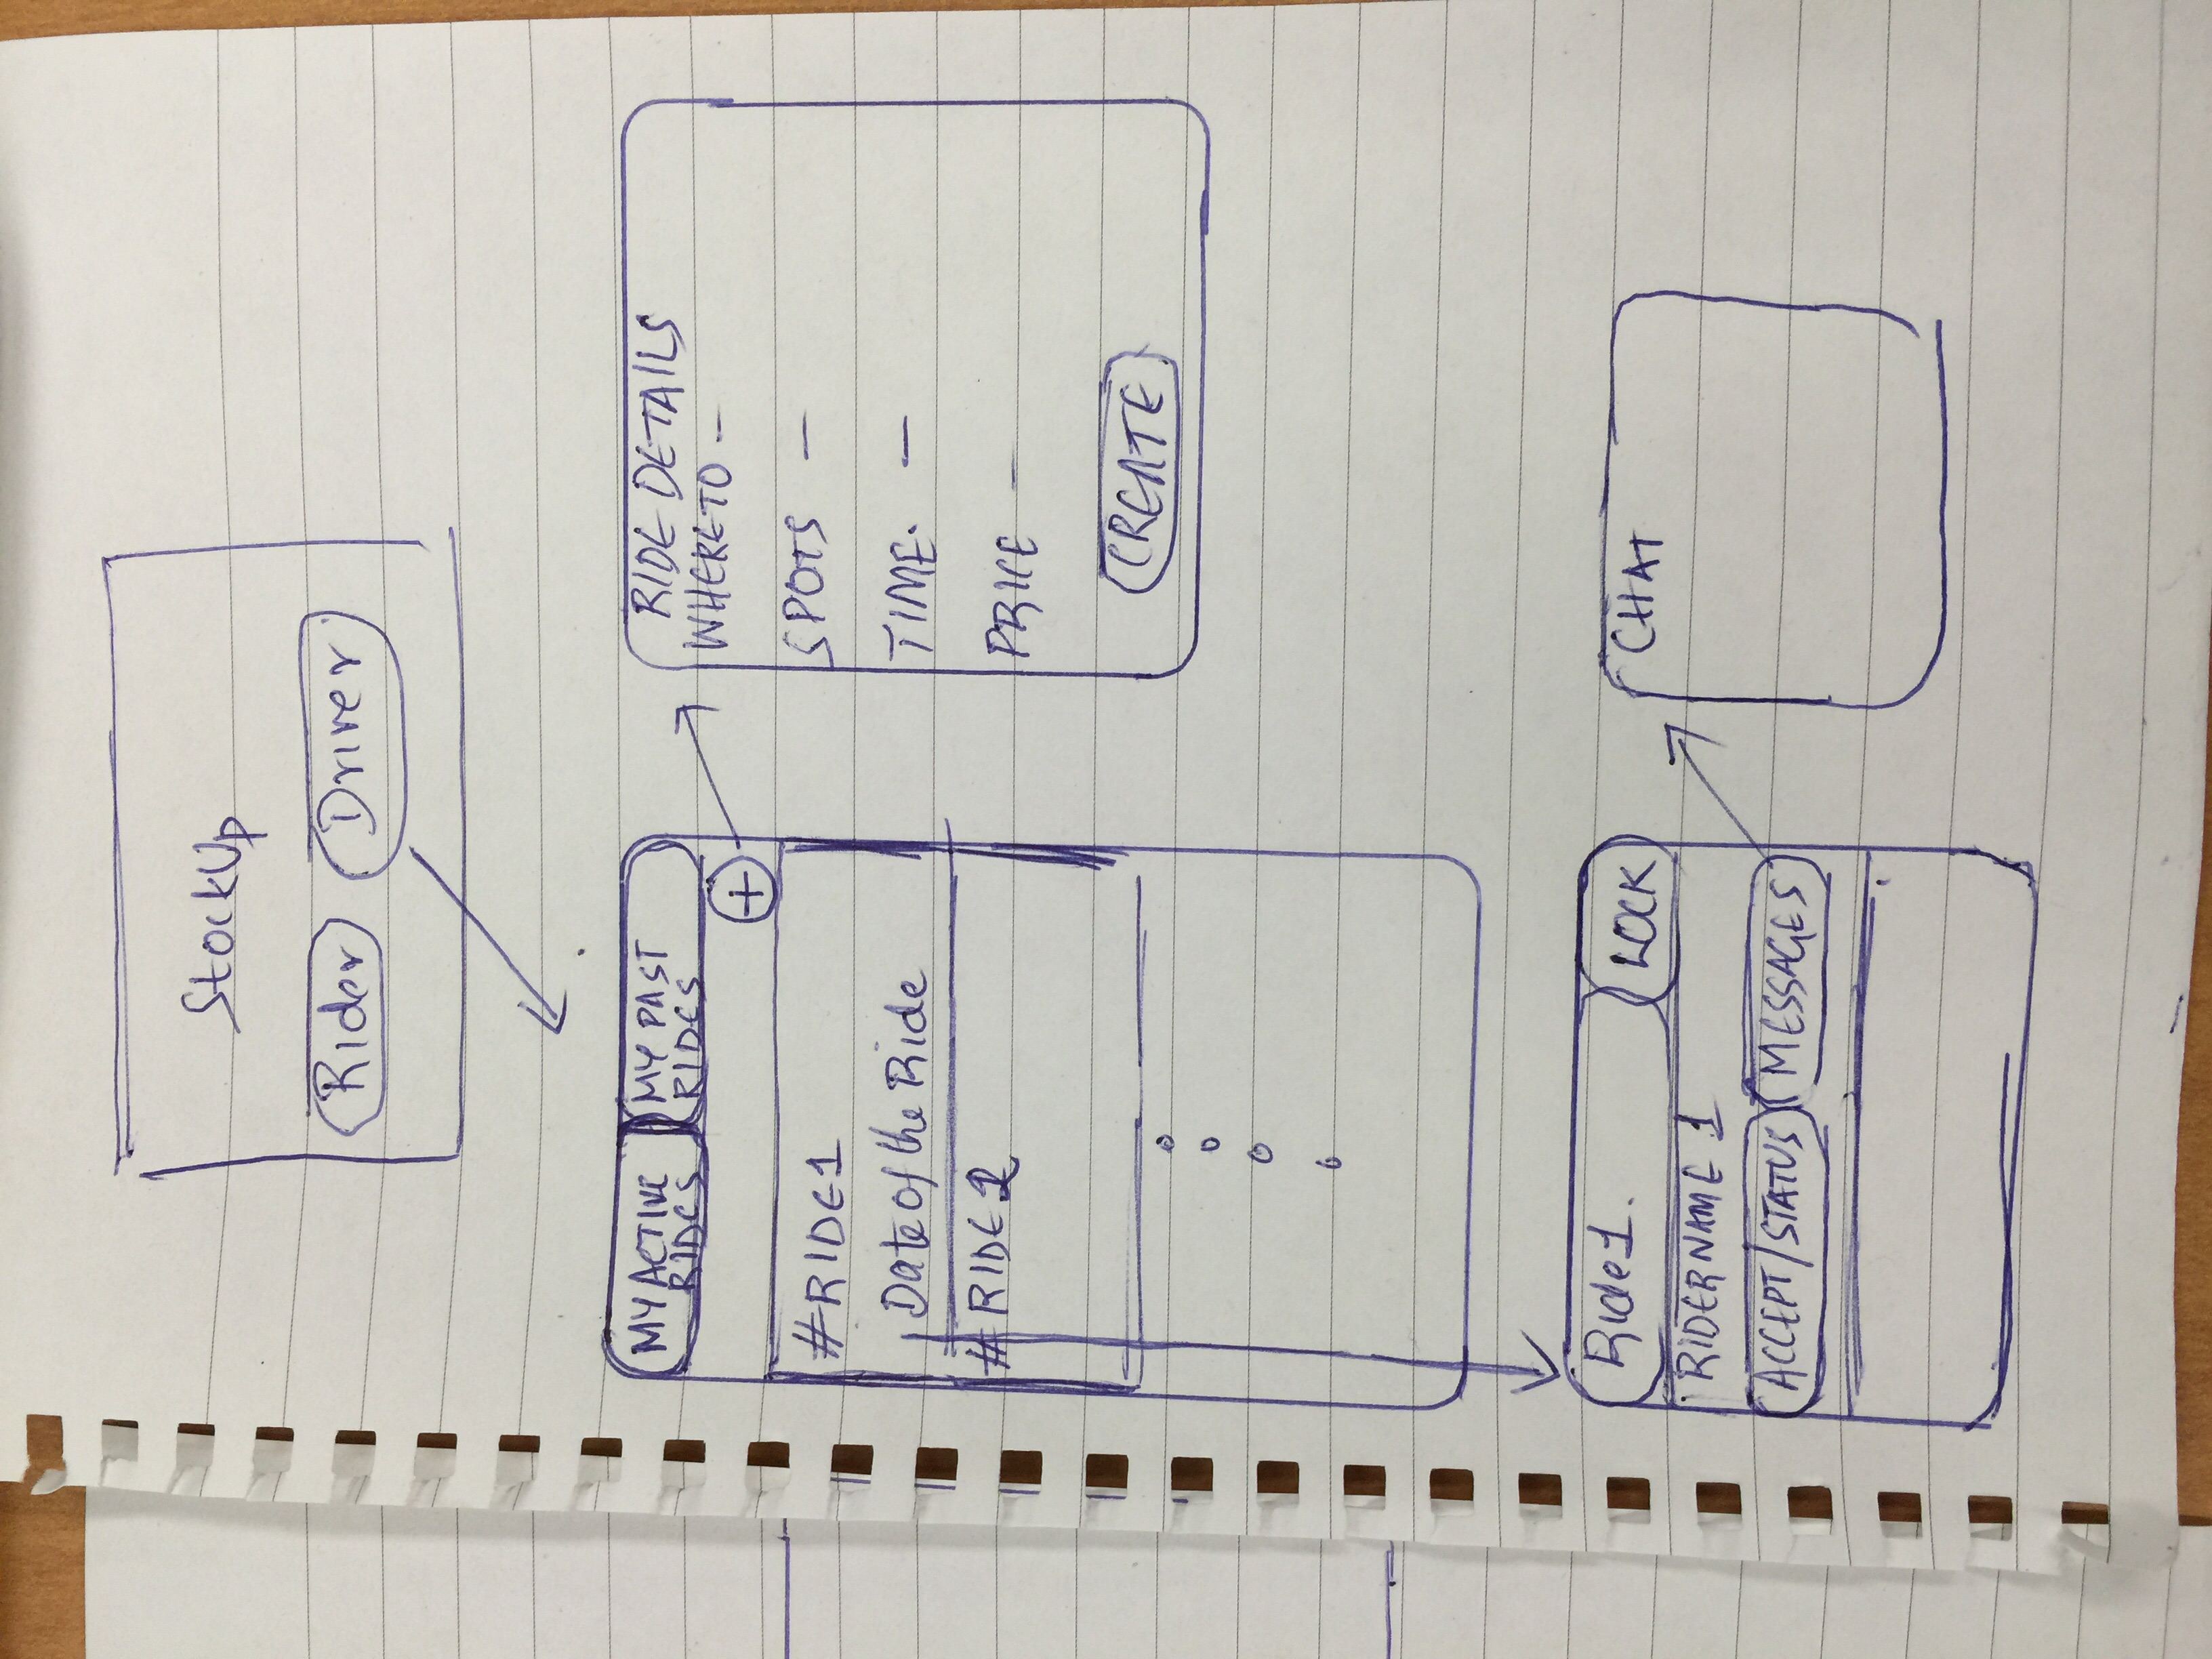 StockUp
Rider
Driver
MY ACTIVE
RIDES
MY PAST
RIDES
+
#RIDE1
Date of the Ride
# RIDE 2
RIDE DETAILS
WHERE TO -
SPOTS -
TIME. -
PRICE -
CREATE
Ride1.
LOCK
RIDERNAME 1
ACCEPT/STATUS
MESSAGES
CHAT